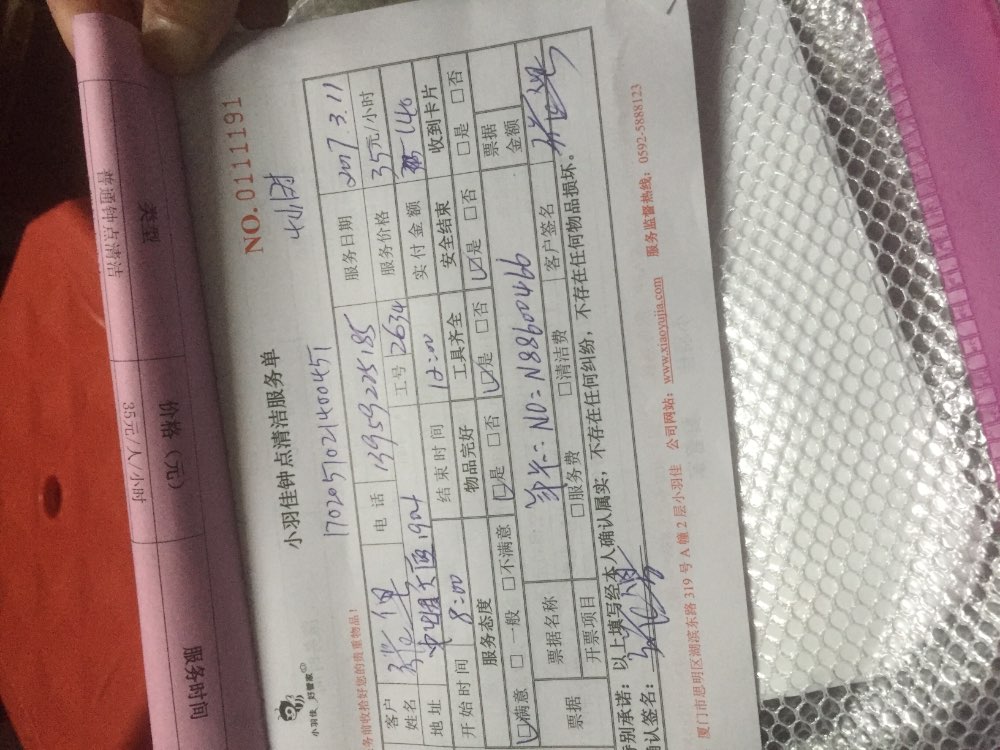 普通钟点清洁
类型
35元/人/小时
价格（元）
服务时间
NO.0111191
小羽佳 好管家
小羽佳钟点清洁服务单
4小时
1702057021400451
务前收拾好您的贵重物品！
客户姓名 电话 13959225185 服务日期 2017.3.11
地址 1921 工号 2634 服务价格 35元/小时
开始时间 8:00 结束时间 12:00 实付金额 140
服务态度 物品完好 工具齐全 安全结束 收到卡片
满意 一般 不满意 是 否 是 否 是 否 是 否
票据 票据名称 NO: N88600466 票据金额
开票项目 服务费 清洁费 客户签名
特别承诺：以上填写经本人确认属实，不存在任何纠纷，不存在任何物品损坏。
确认签名：
厦门市思明区湖滨东路319号A幢2层小羽佳 公司网站：www.xiaoyujia.com 服务监督热线：0592-5888123